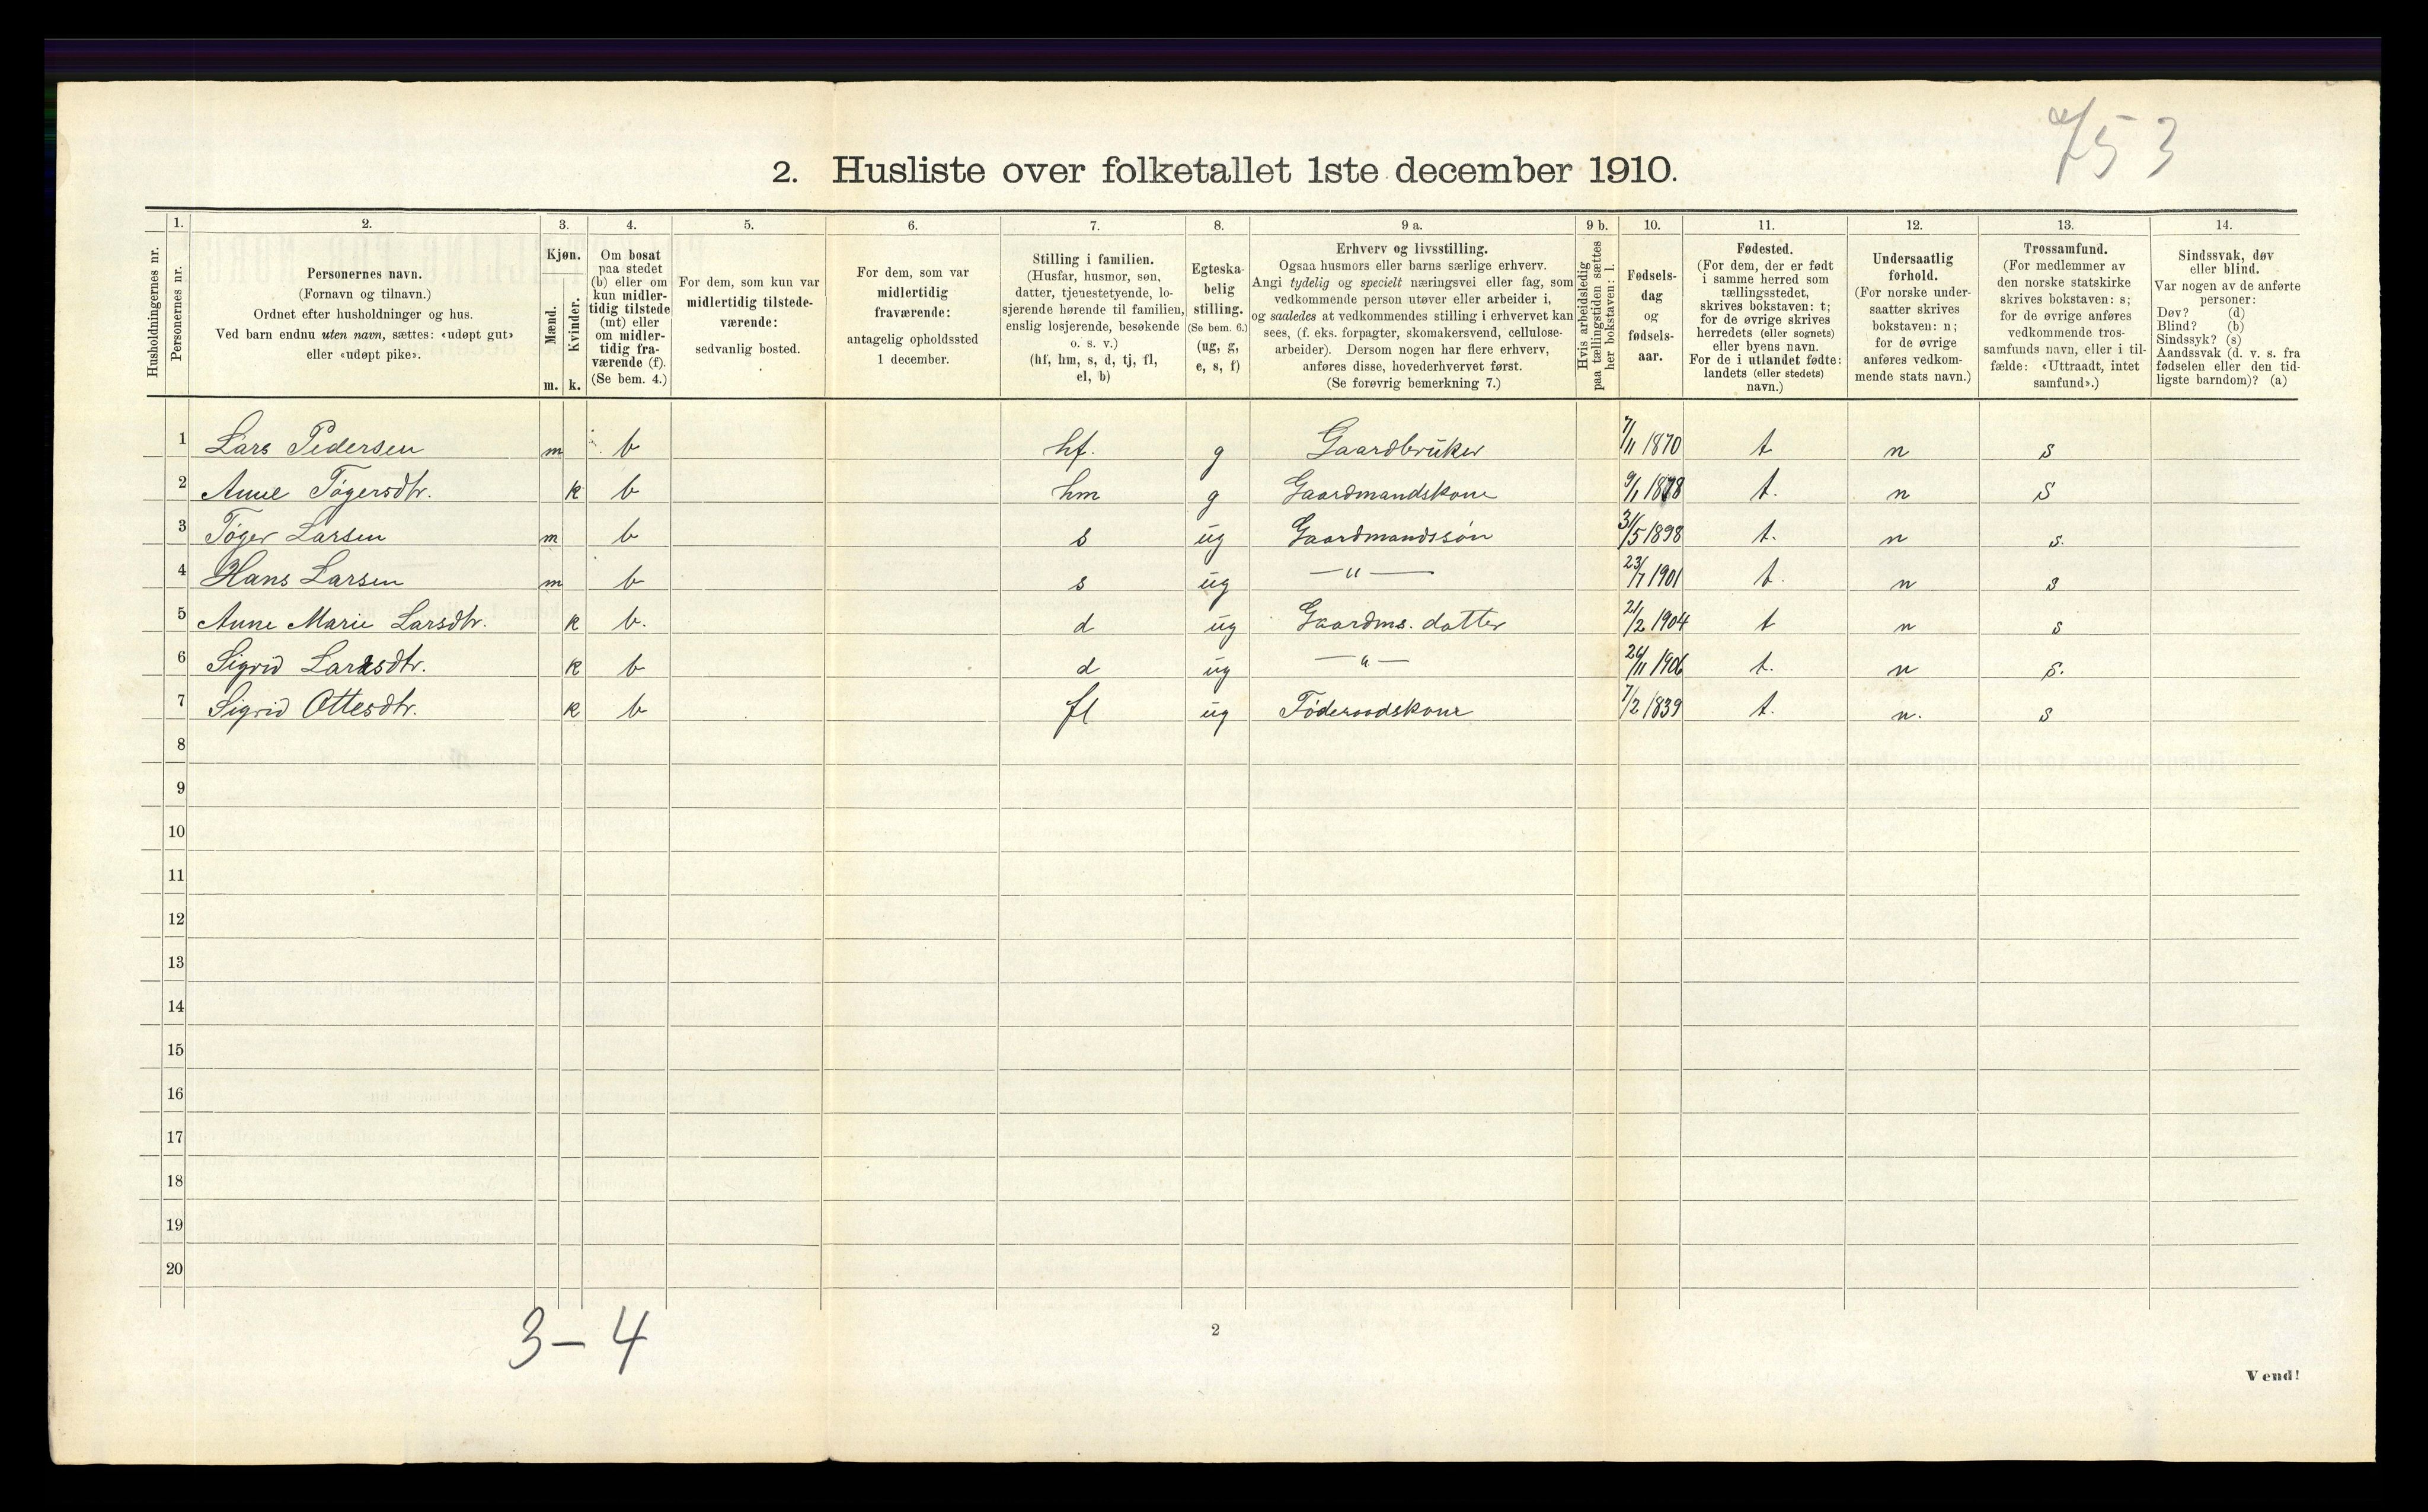 753
2. Husliste over folketallet 1ste december 1910.
Husholdningernes nr.
1. Personernes nr.
2. Personernes navn. (Fornavn og tilnavn.) Ordnet efter husholdninger og hus. Ved barn endnu uten navn, sættes: «udøpt gut» eller «udøpt pike».
3. Kjøn. Mænd. m. Kvinder. k.
4. Om bosat paa stedet (b) eller om kun midlertidig tilstede (mt) eller om midlertidig fraværende (f). (Se bem. 4.)
5. For dem, som kun var midlertidig tilstedeværende: sedvanlig bosted.
6. For dem, som var midlertidig fraværende: antagelig opholdssted 1 december.
7. Stilling i familien. (Husfar, husmor, søn, datter, tjenestetyende, losjerende hørende til familien, enslig losjerende, besøkende o. s. v.) (hf, hm, s, d, tj, fl, el, b)
8. Egteskabelig stilling. (Se bem. 6.) (ug, g, e, s, f)
9 a. Erhverv og livsstilling. Ogsaa husmors eller barns særlige erhverv. Angi tydelig og specielt næringsvei eller fag, som vedkommende person utøver eller arbeider i, og saaledes at vedkommendes stilling i erhvervet kan sees, (f. eks. forpagter, skomakersvend, cellulosearbeider). Dersom nogen har flere erhverv, anføres disse, hovederhvervet først. (Se forøvrig bemerkning 7.)
9 b. Hvis arbeidsledig paa tællingstiden sættes her bokstaven: l.
10. Fødselsdag og fødselsaar.
11. Fødested. (For dem, der er født i samme herred som tællingsstedet, skrives bokstaven: t; for de øvrige skrives herredets (eller sognets) eller byens navn. For de i utlandet fødte: landets (eller stedets) navn.)
12. Undersaatlig forhold. (For norske undersaatter skrives bokstaven: n; for de øvrige anføres vedkommende stats navn.)
13. Trossamfund. (For medlemmer av den norske statskirke skrives bokstaven: s; for de øvrige anføres vedkommende trossamfunds navn, eller i tilfælde: «Uttraadt, intet samfund».)
14. Sindssvak, døv eller blind. Var nogen av de anførte personer: Døv? (d) Blind? (b) Sindssyk? (s) Aandssvak (d. v. s. fra fødselen eller den tidligste barndom)? (a)
1 Lars Pedersen m b hf. g Gaardbruker 7/11 1870 t n s
2 Anne Tøgersdtr. k b hm g Gaardmandskone 9/1 1878 t. n s
3 Tøger Larsen m b s ug Gaardmandssøn 31/5 1898 t. n s.
4 Hans Larsen m b s ug —"— 23/7 1901 t. n s
5 Anne Marie Larsdtr. k b. d ug Gaardms. datter 21/2 1904 t n s
6 Sigrid Larsdtr. k b d ug —"— 26/11 1906 t. n s.
7 Sigrid Ottesdtr. k b fl ug Føderaadskone 7/2 1839 t. n. s
8
9
10
11
12
13
14
15
16
17
18
19
20
3 – 4
2
Vend!